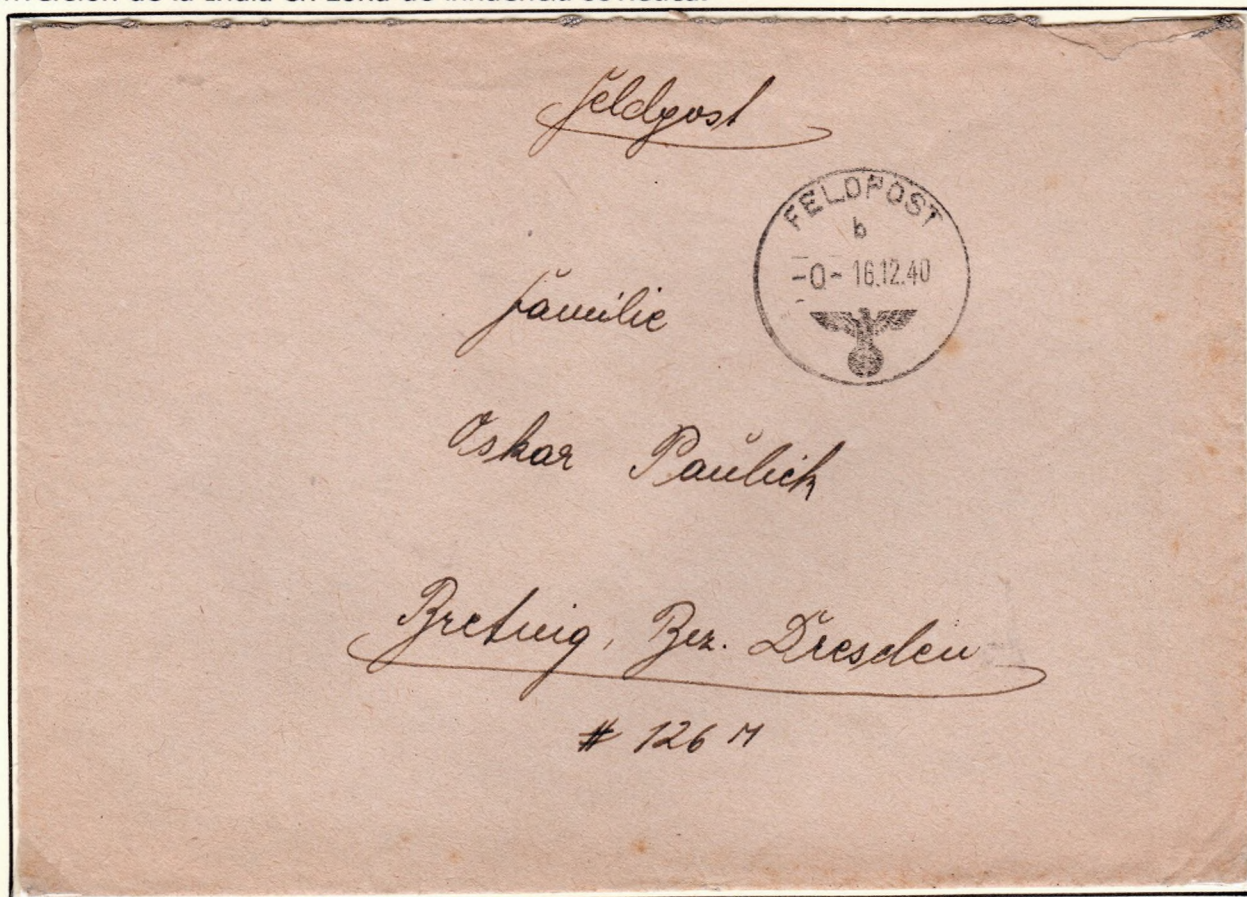 Feldpost
FELDPOST
b
-0- 16.12.40
Familie
Oskar Paŭlick
Bretnig, Bez. Dresden
# 126 M